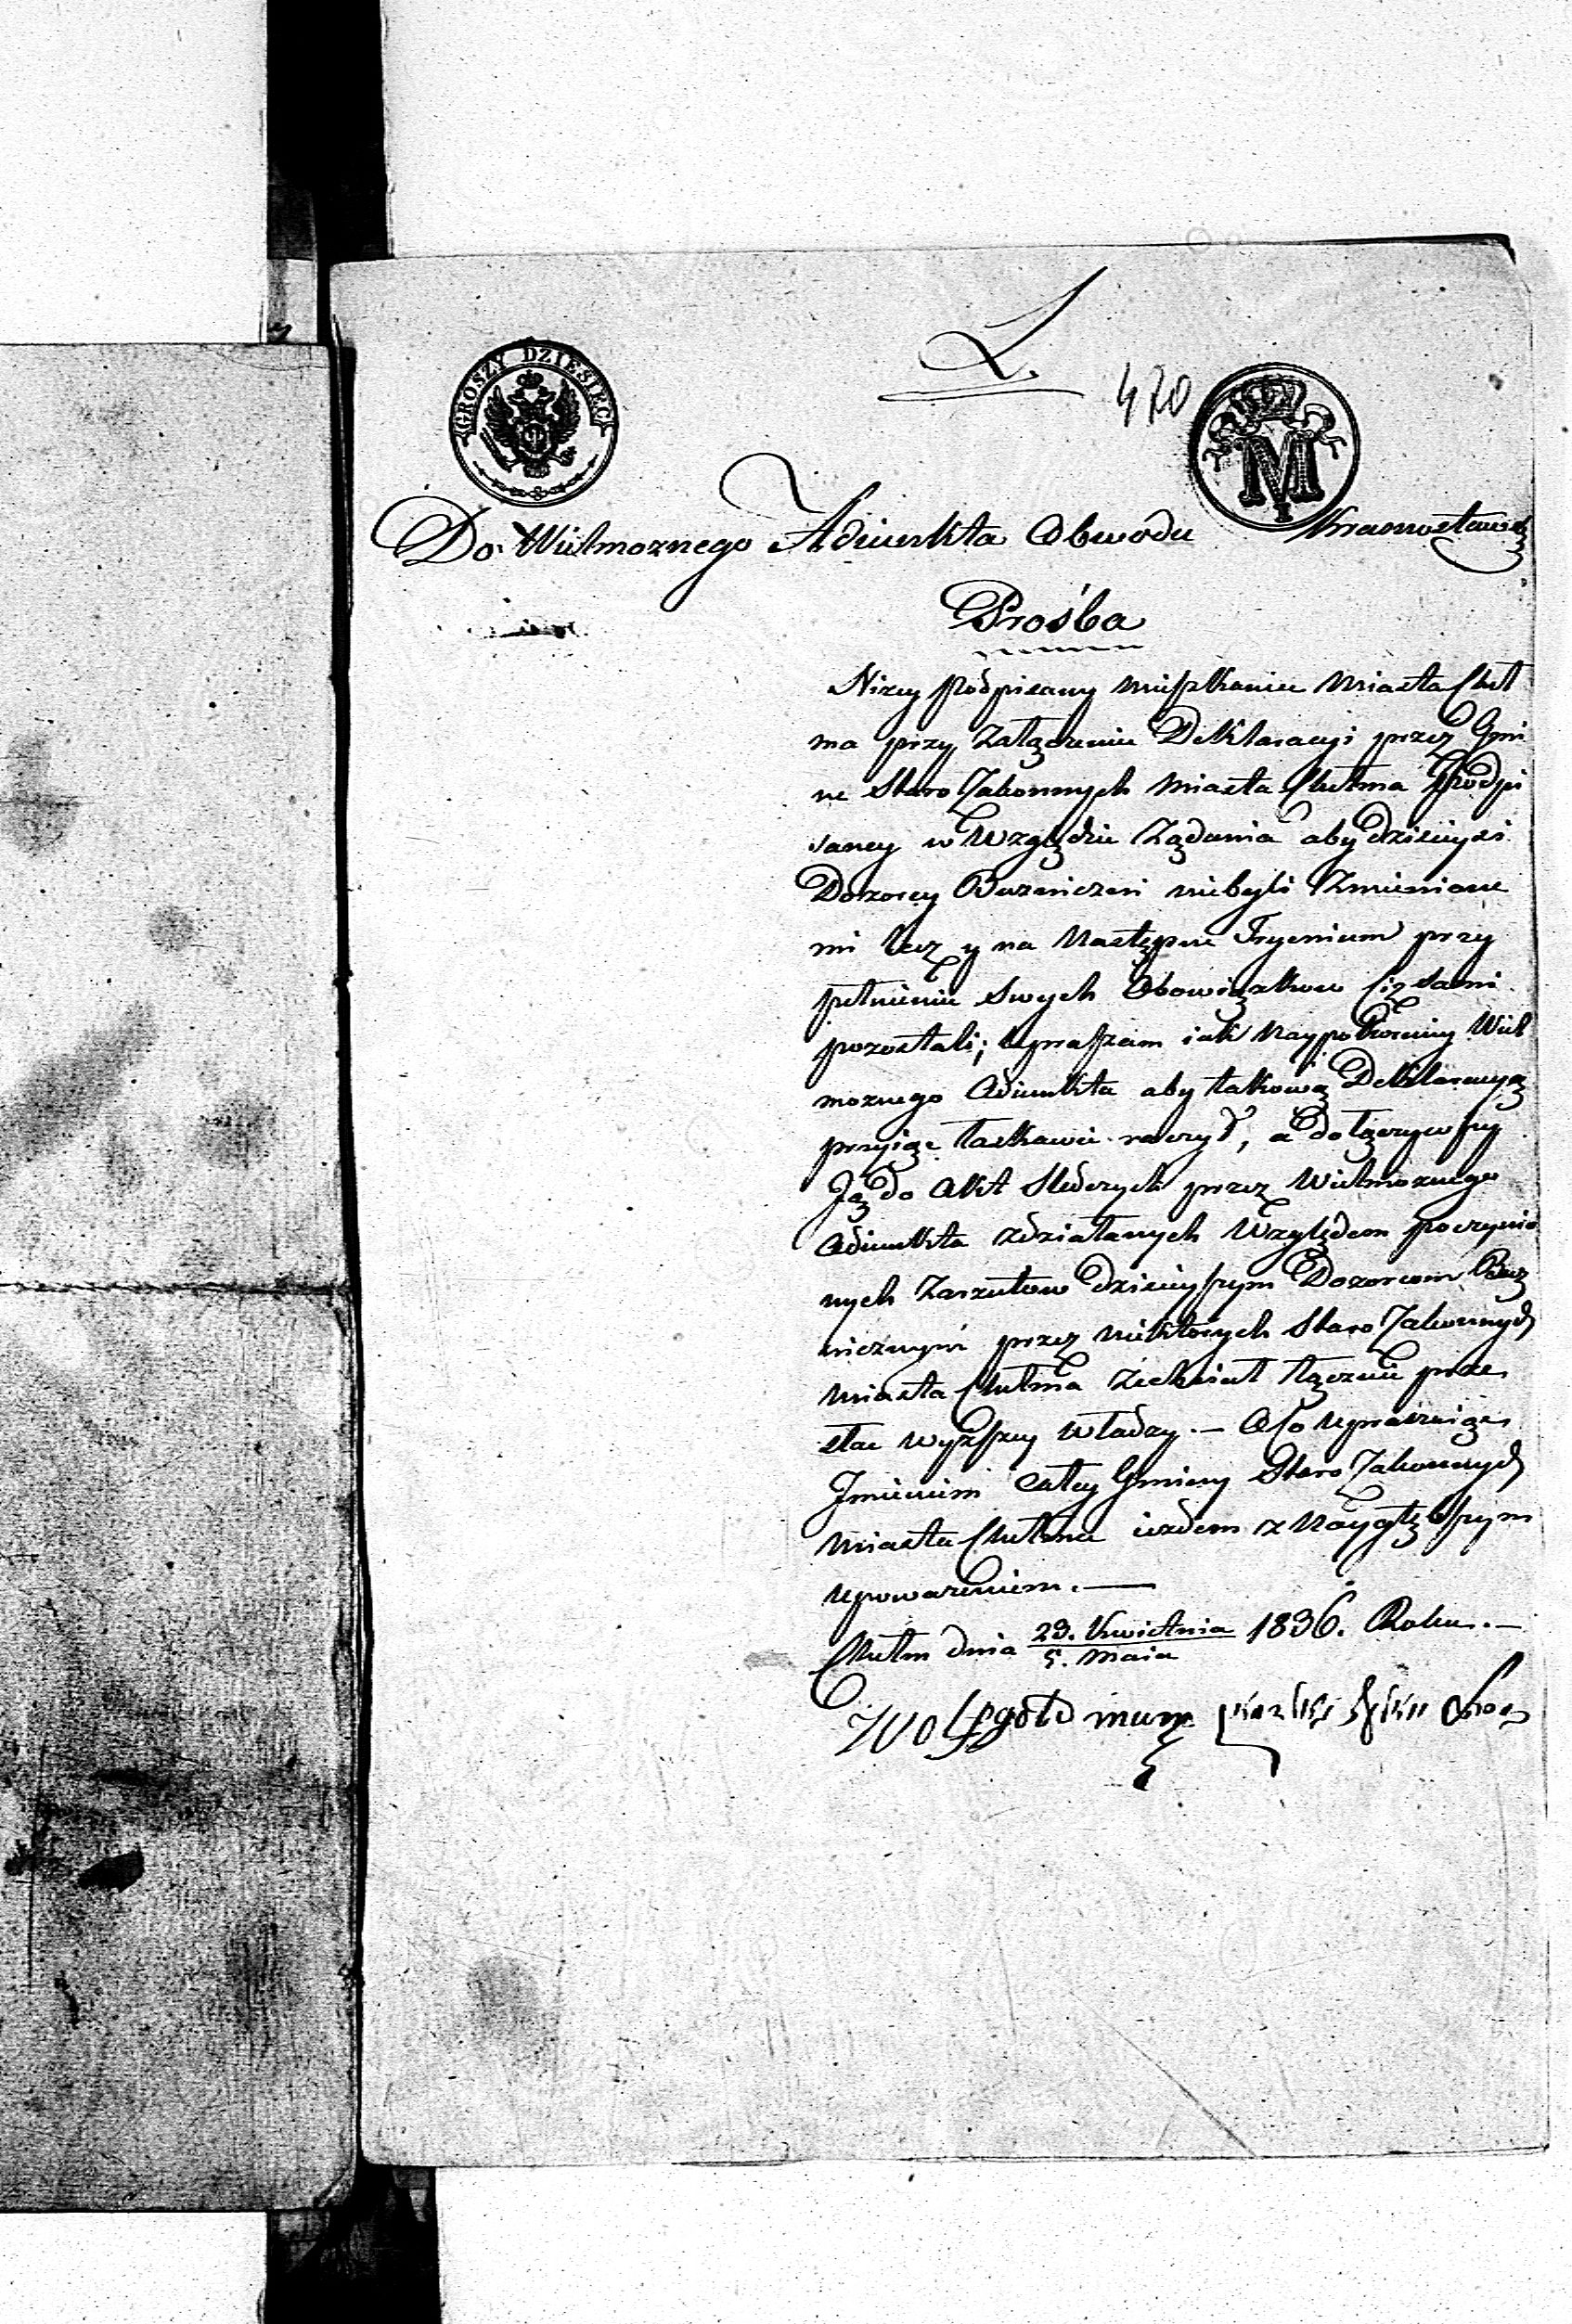 L.
470
GROSZY DZIESIĘĆ
M
Do Wielmoznego Adiunkta Obwodu Krasnostaws
Prośba
Nizey podpisany mieszkaniec Miasta Cheł
ma przy Załączeniu Deklaracyi przez Gmi
ne Staro Zakonnych Miasta Chełma podpi
saney w Względzie Żądania aby dzisieysi
Dozorcy Buzniczni niebyli Zmieniane
mi lecz y na Następne Tryenium przy
pełnieniu swych Obowiązkow Ciż sami
pozostali; Upraszam iak Naypokorniey Wiel
moznego Adiunkta aby takową Deklaracyą
przyiąc łaskawie raczył, a dołączywszy
Ją do Akt Sledczych przez Wielmoznego
Adiunkta zdziałanych Względem poczynio
nych Zarzutow dzisieyszym Dozorcom Buz
nicznym przez niektorych Staro Zakonnych
Miasta Chełma Zechciał łącznie prze
słac wyzszey władzy. — O Co Upraszaiąc
Jmieniem całey Gminy Staro Zakonnych
Miasta Chełma iestem z Naygłębszym
upowazeniem. —
Chełm dnia 23. Kwietnia / 5. Maia 1836. Roku. —
Wolf gold